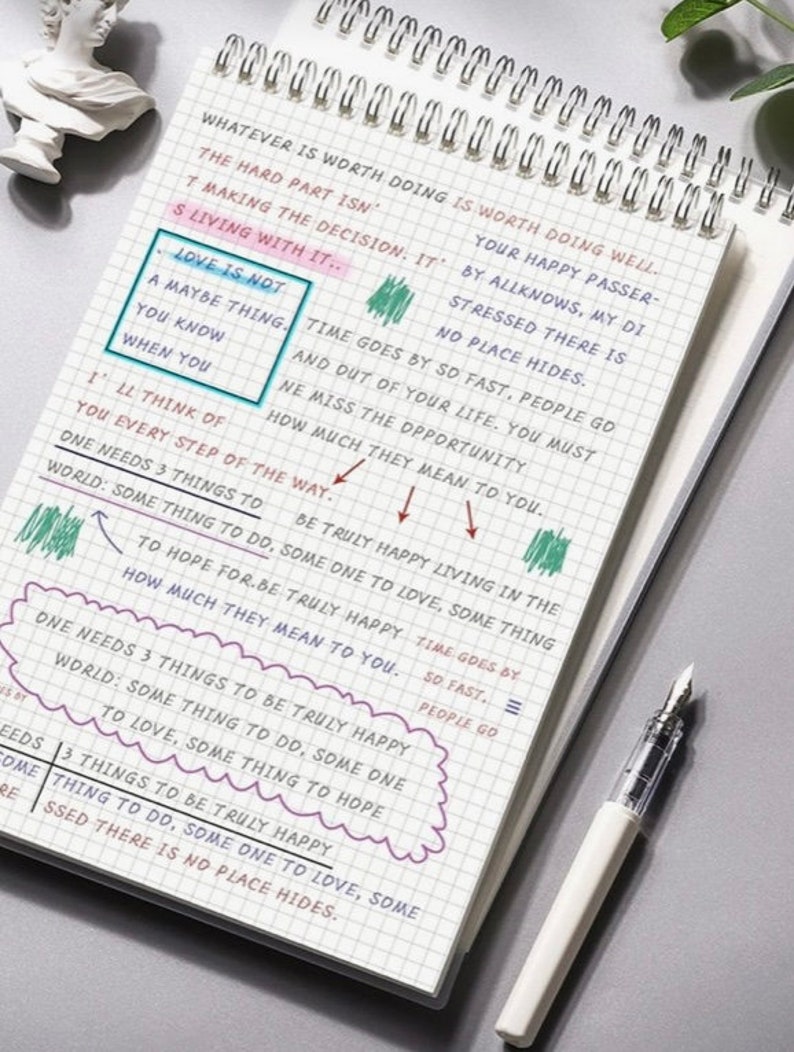 WHATEVER IS WORTH DOING IS WORTH DOING WELL.
THE HARD PART ISN'
T MAKING THE DECISION. IT'
S LIVING WITH IT..
YOUR HAPPY PASSER-
BY ALLKNOWS, MY DI
STRESSED THERE IS
NO PLACE HIDES.
. LOVE IS NOT
A MAYBE THING.
YOU KNOW
WHEN YOU
TIME GOES BY SO FAST, PEOPLE GO
AND OUT OF YOUR LIFE. YOU MUST
NE MISS THE OPPORTUNITY
HOW MUCH THEY MEAN TO YOU.
I' LL THINK OF
YOU EVERY STEP OF THE WAY.
ONE NEEDS 3 THINGS TO
BE TRULY HAPPY LIVING IN THE
WORLD: SOME THING TO DO, SOME ONE TO LOVE, SOME THING
TO HOPE FOR.BE TRULY HAPPY
HOW MUCH THEY MEAN TO YOU.
TIME GOES BY
SO FAST,
PEOPLE GO
ONE NEEDS 3 THINGS TO BE TRULY HAPPY
WORLD: SOME THING TO DO, SOME ONE
TO LOVE, SOME THING TO HOPE
ES BY
EEDS 3 THINGS TO BE TRULY HAPPY
SOME THING TO DO, SOME ONE TO LOVE, SOME
RE SSED THERE IS NO PLACE HIDES.